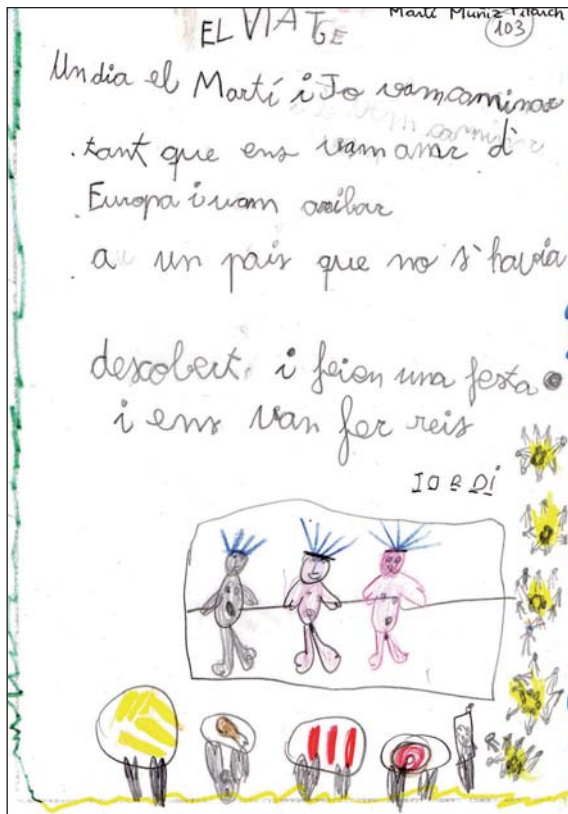 Martí Muñiz Pitarch
103
EL VIATGE
Un dia el Martí i Jo vam caminar
tant que ens vam anar d'
Europa i vam aribar
a un país que no s'havia
descobert. i feien una festa
i ens van fer reis
JORDI